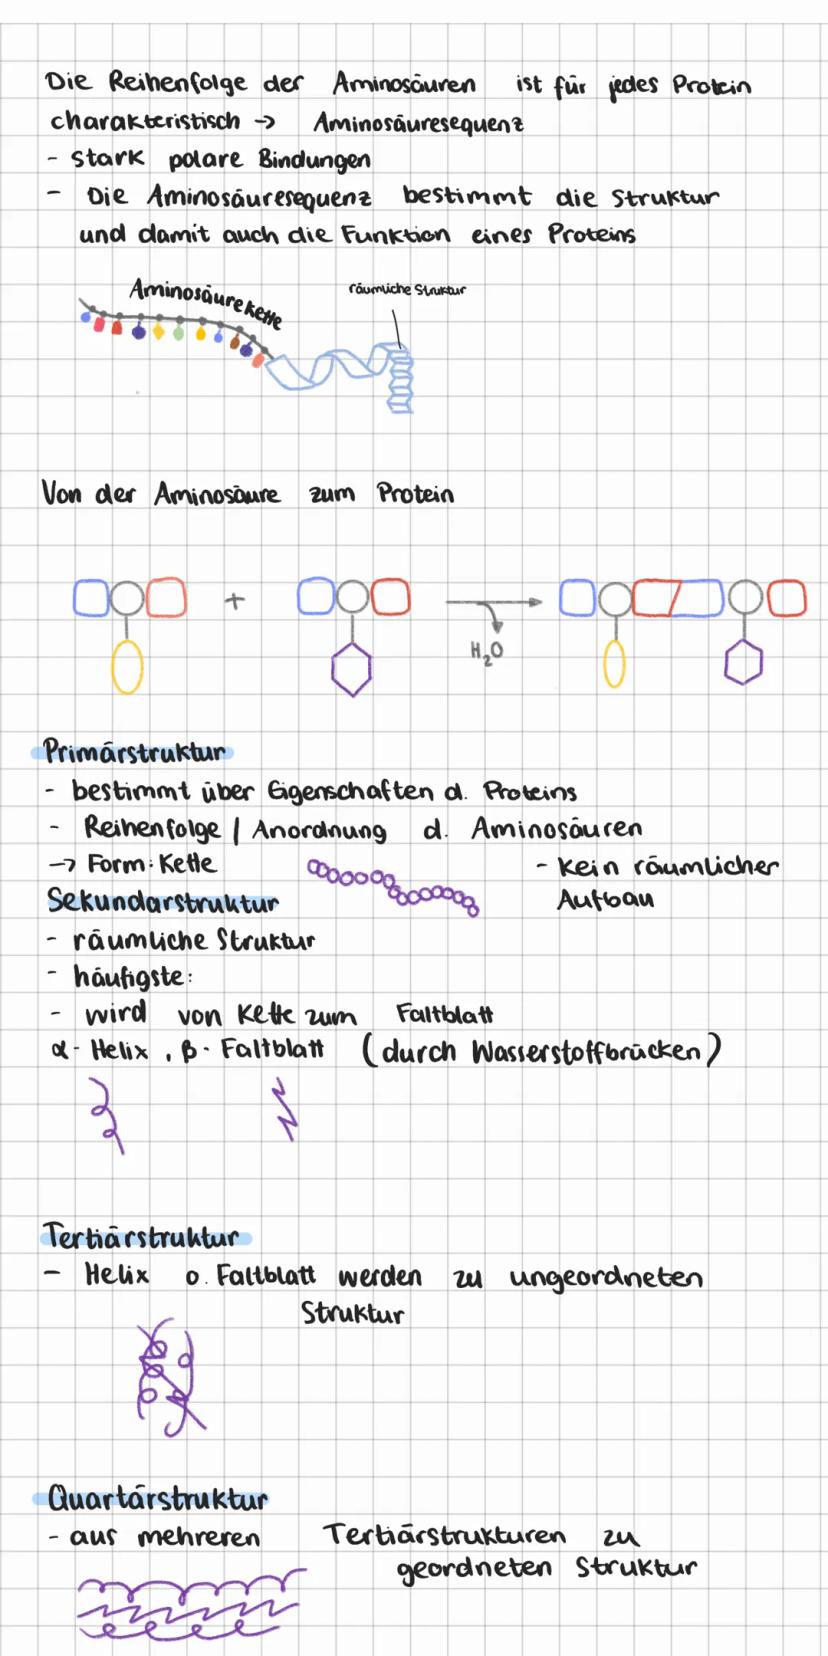 Die Reihenfolge der Aminosäuren ist für jedes Protein
charakteristisch → Aminosäuresequenz
- stark polare Bindungen
- Die Aminosäuresequenz bestimmt die Struktur
und damit auch die Funktion eines Proteins
Aminosäurekette
räumliche Struktur
Von der Aminosäure zum Protein
+
H₂O
Primärstruktur
- bestimmt über Eigenschaften d. Proteins
- Reihenfolge / Anordnung d. Aminosäuren
→ Form: Kette
- kein räumlicher
Aufbau
Sekundarstruktur
- räumliche Struktur
- häufigste:
- wird von Kette zum Faltblatt
α-Helix, β-Faltblatt (durch Wasserstoffbrücken)
Tertiärstruktur
- Helix o. Faltblatt werden zu ungeordneten
Struktur
Quartärstruktur
- aus mehreren Tertiärstrukturen zu
geordneten Struktur